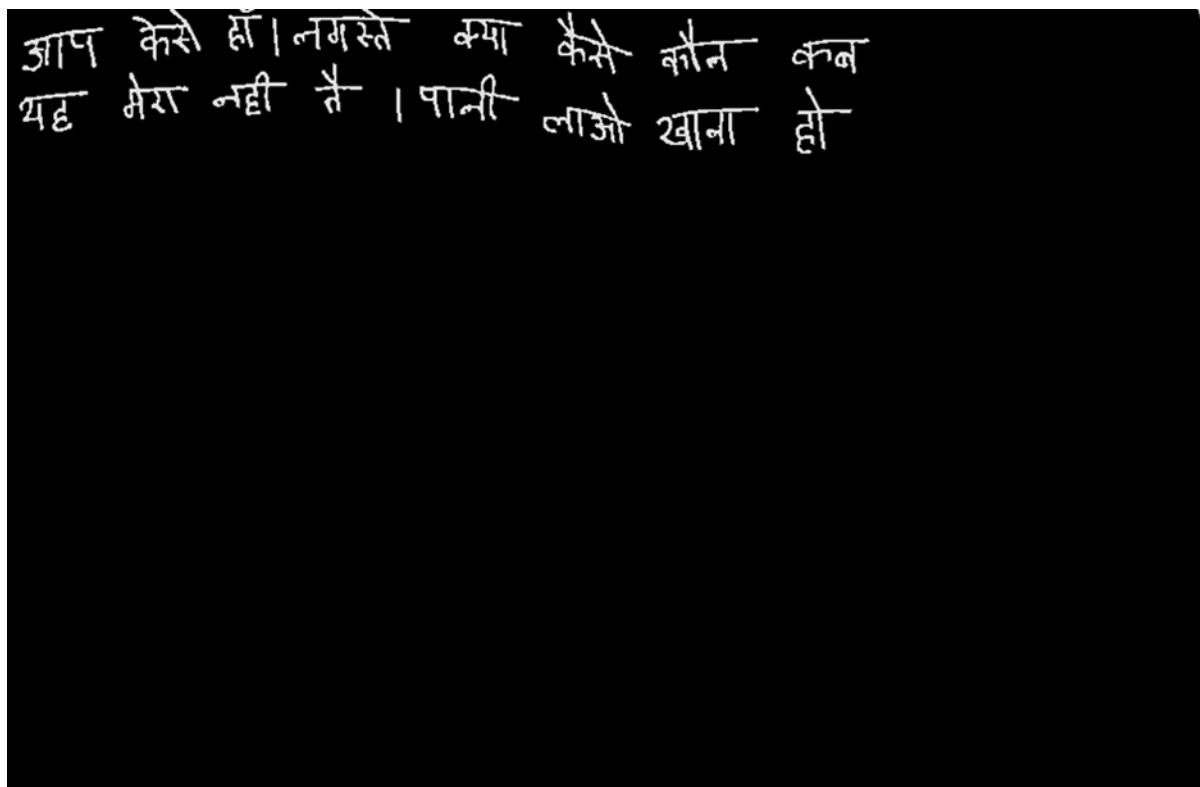 आप केसे हो । लगस्ते क्या कैसे कौन कब
यह मेरा नही तै । पानी लाओ खाना हो